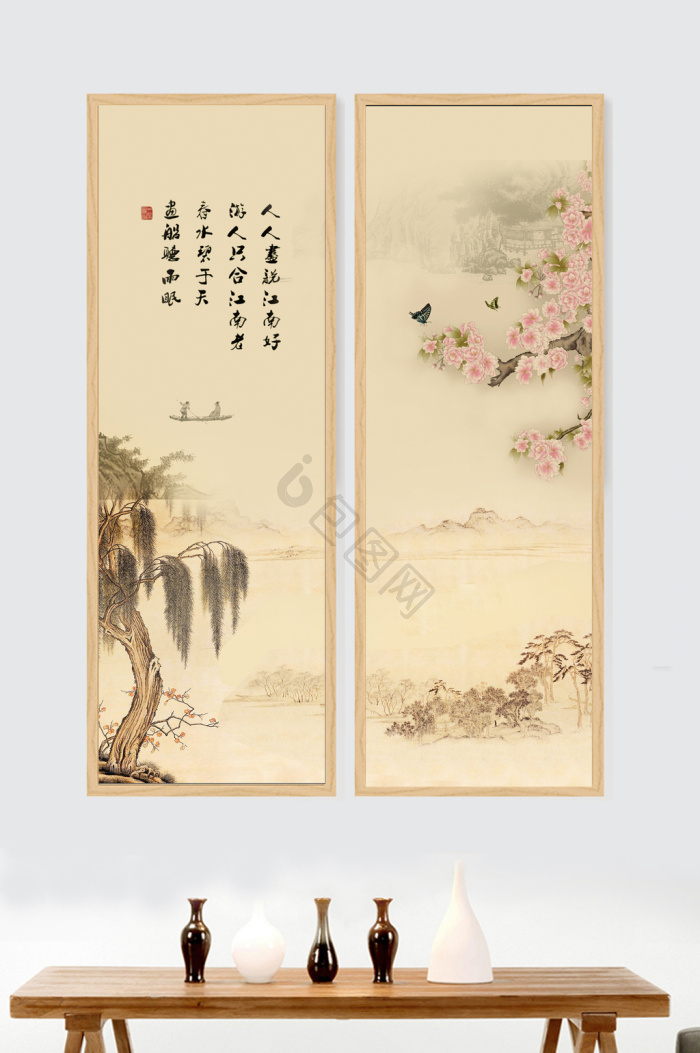 人人盡說江南好
游人只合江南老
春水碧于天
畫船聽雨眠
包图网